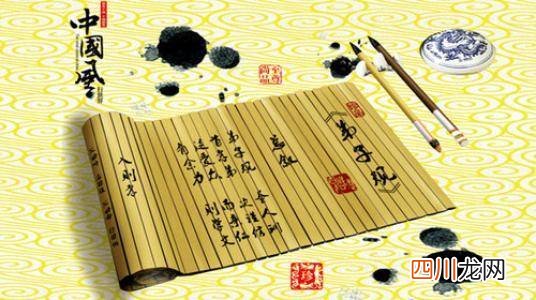 中國風
《弟子规》
总叙
弟子规 圣人训
首孝弟 次谨信
泛爱众 而亲仁
有余力 则学文
入则孝
珍
四川龙网